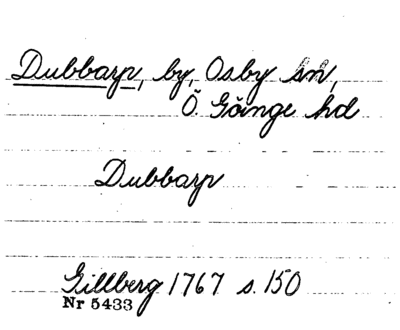 Dubbarp, by, Osby sn,
Ö. Göinge hd
Dubbarp
Gillberg 1767 s. 150
Nr 5433